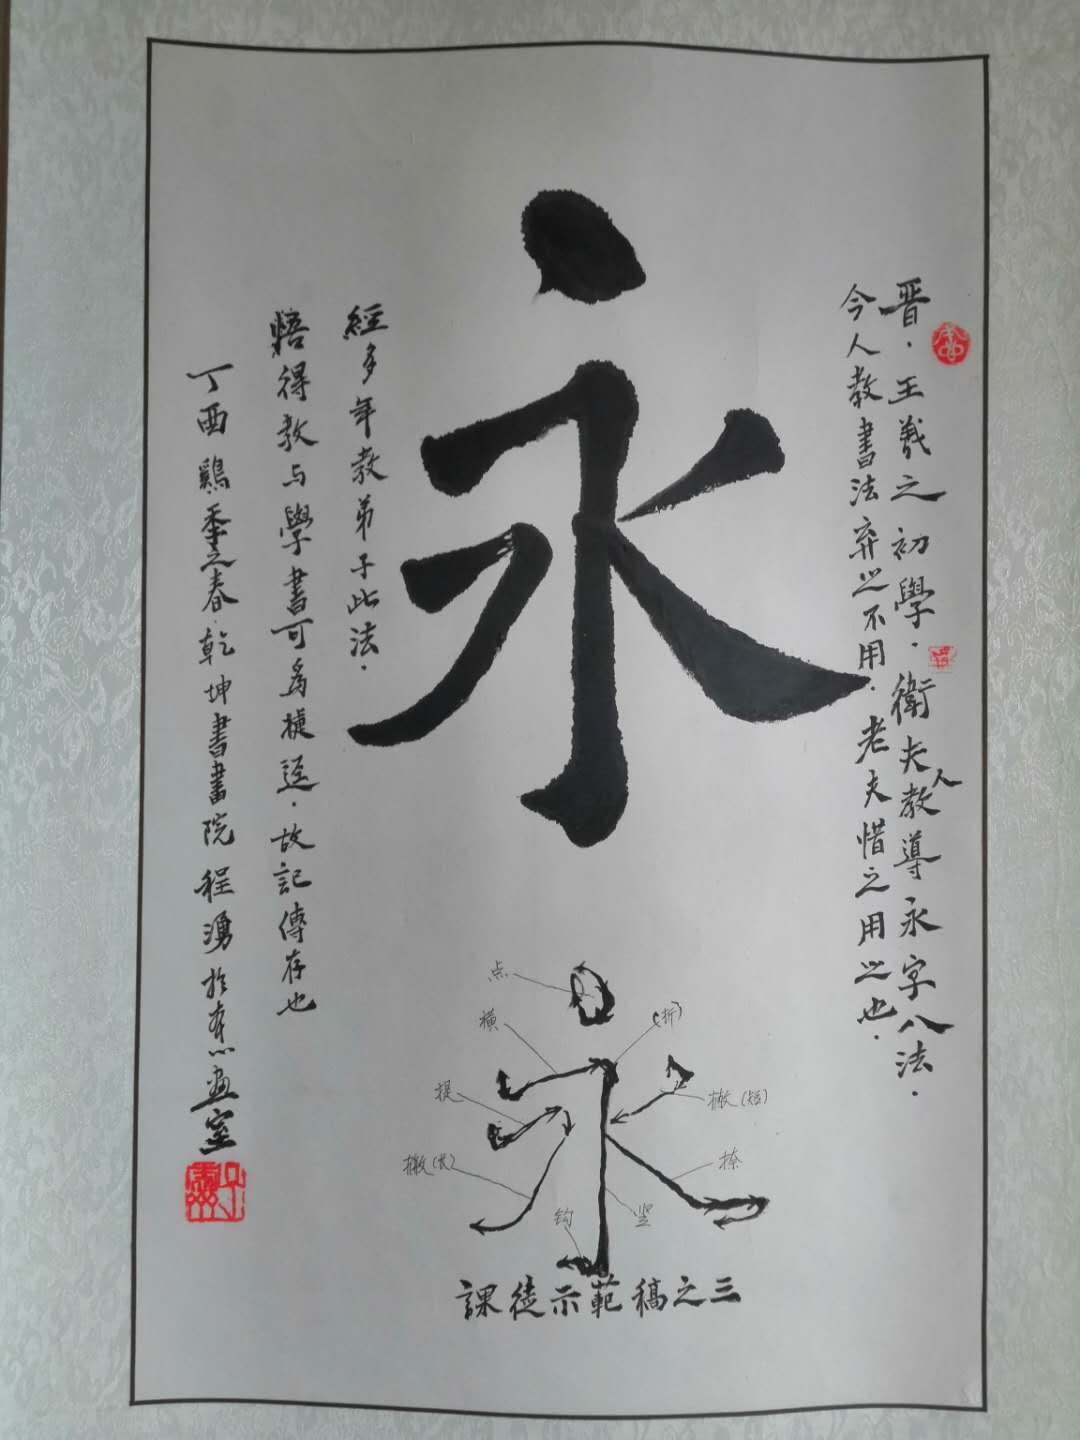 永
晋．王羲之初學．衛夫人教導永字八法．
今人教書法弃之不用．老夫惜之用之也．
經多年教弟子此法．
悟得教与學書可為捷逕．故記傳存也
丁酉鷄年之春．乾坤書畫院程湧於有心画室
点
横
(折)
提
撇(短)
撇(长)
捺
钩
竖
課徒示範稿之三